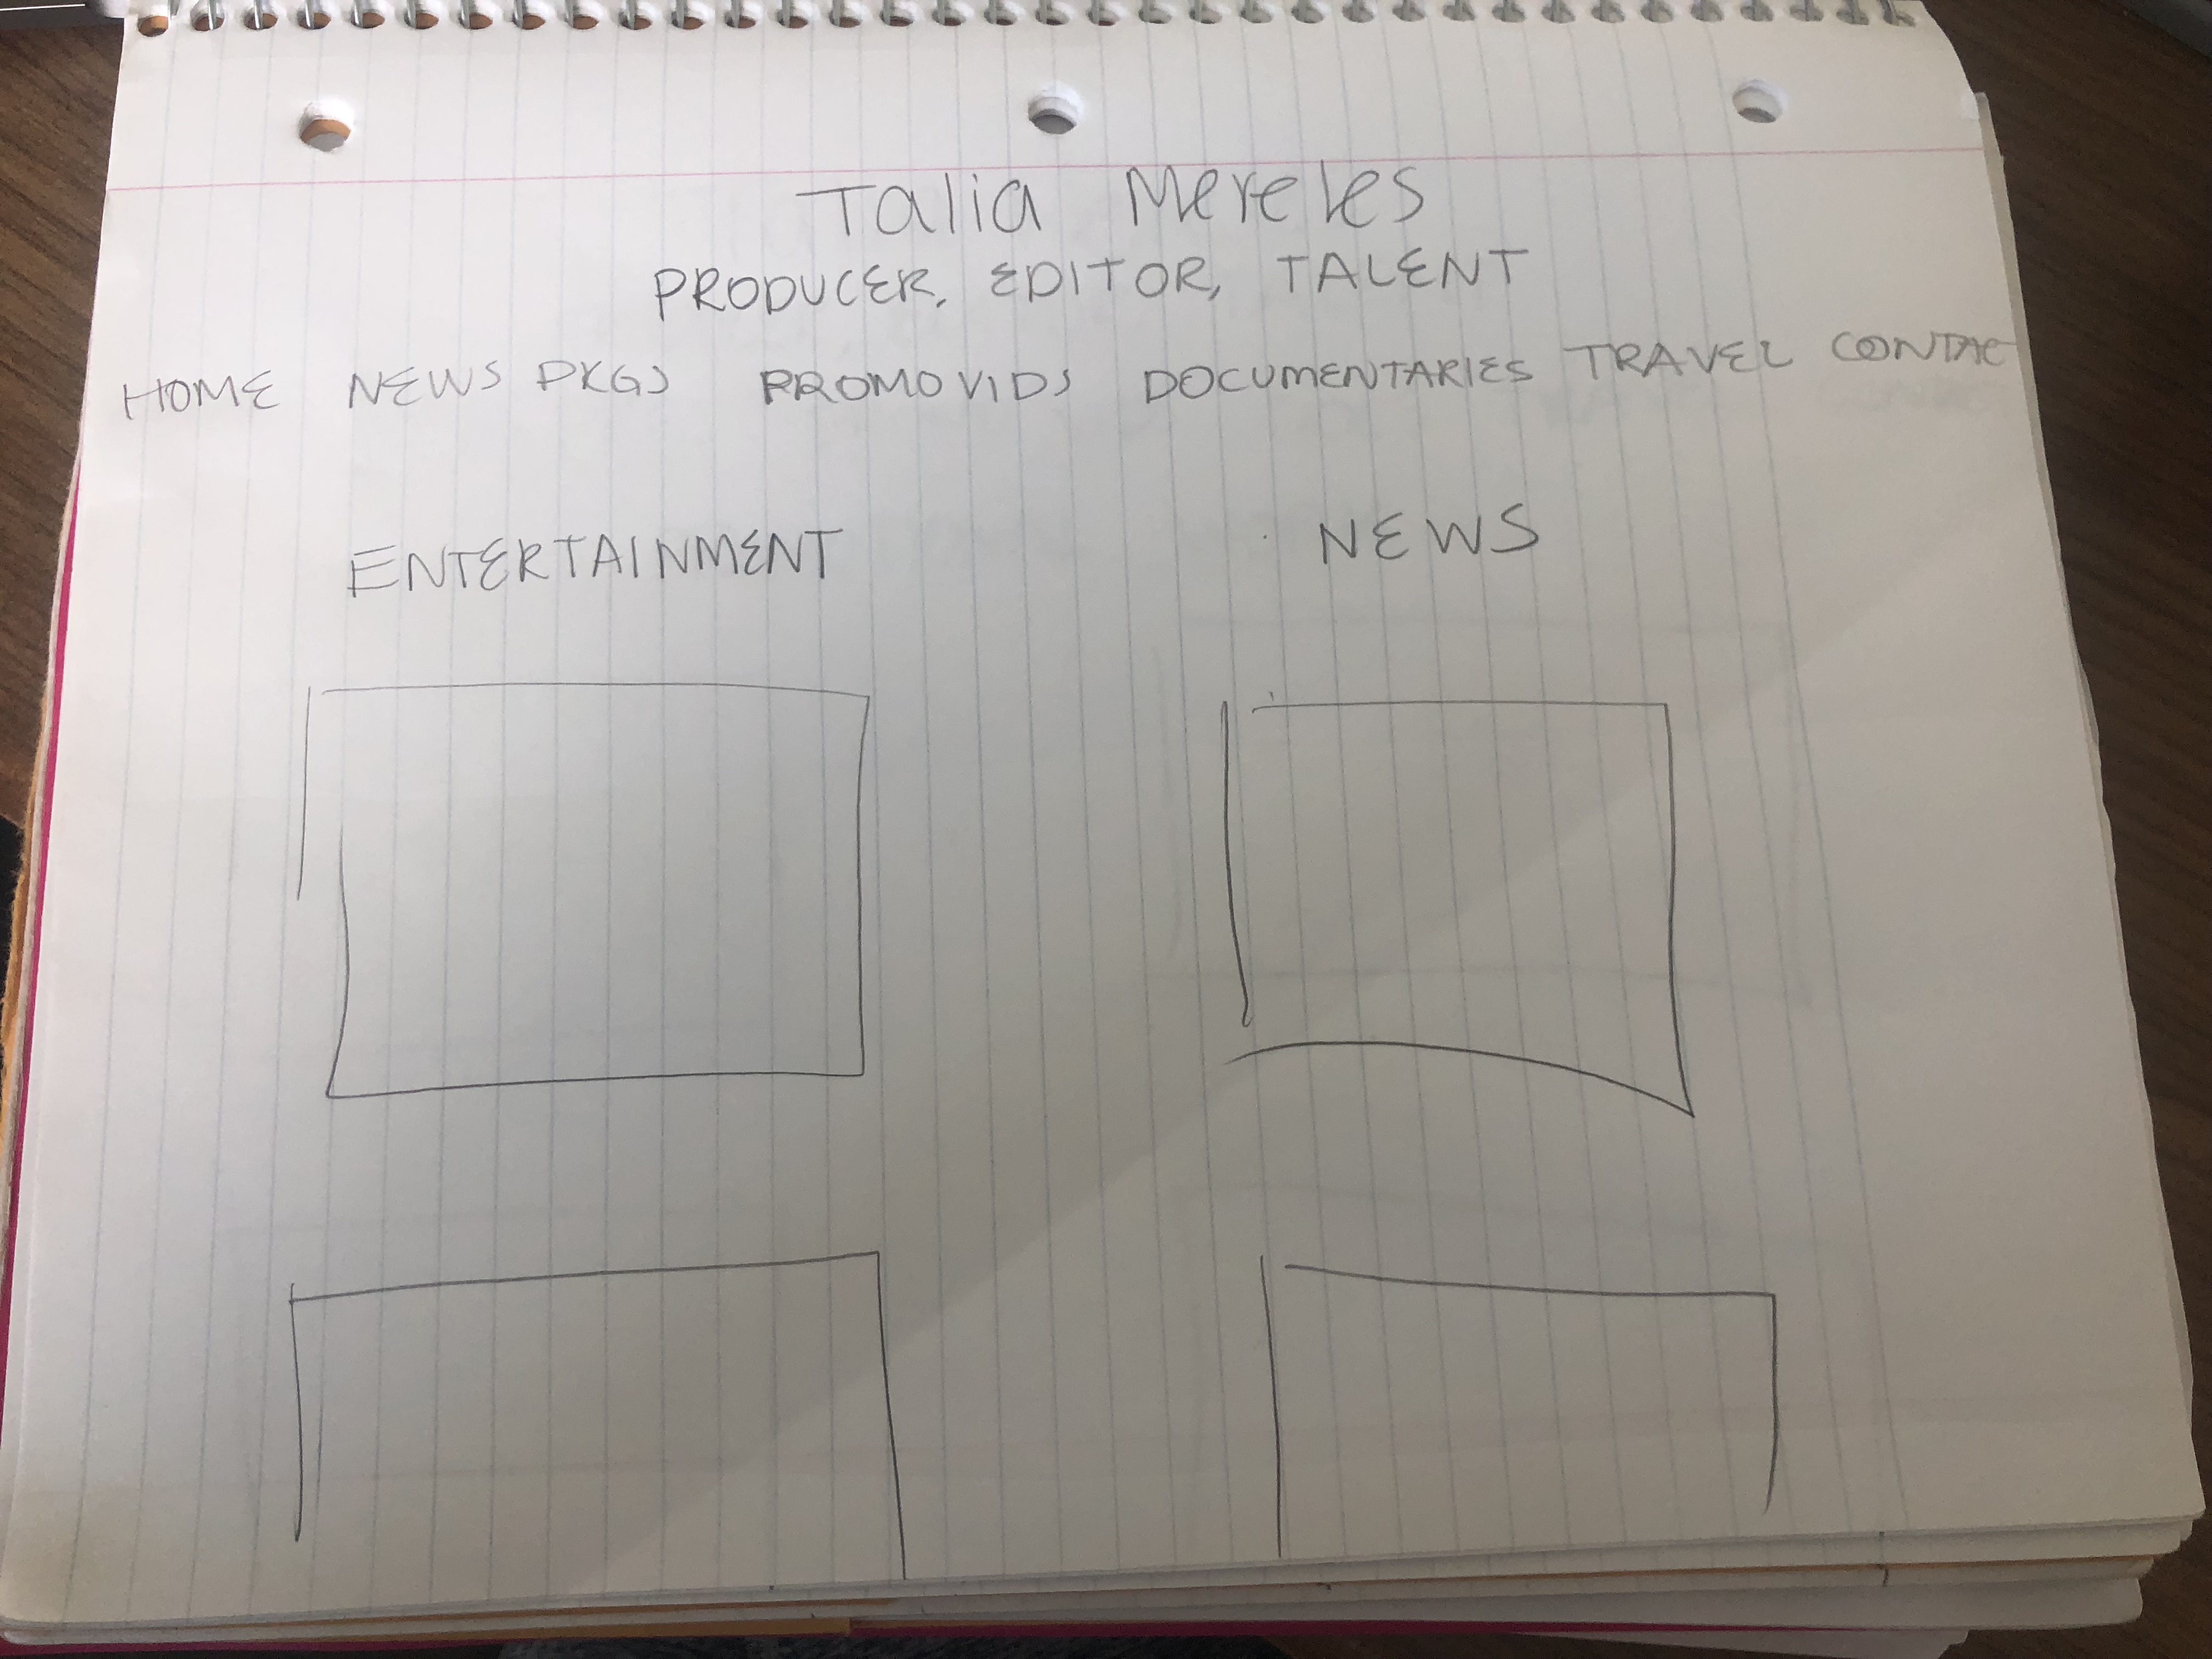 Talia Mereles
PRODUCER, EDITOR, TALENT
HOME NEWS PKGS PROMO VIDS DOCUMENTARIES TRAVEL CONTAC
ENTERTAINMENT NEWS